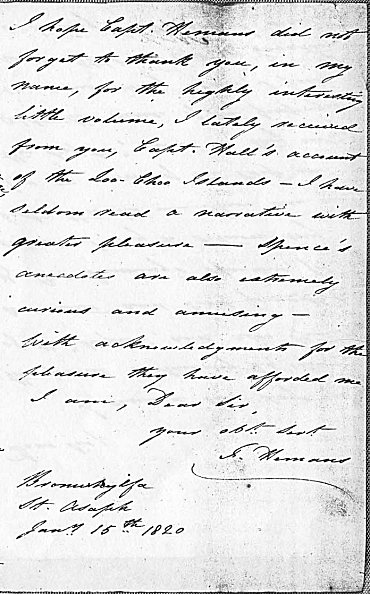 I hope Capt. Hemans did not
forget to thank you, in my
name, for the highly interesting
little volume, I lately received
from you, Capt. Hall's account
of the Loo-Choo Islands – I have
seldom read a narrative with
greater pleasure — Spence's
anecdotes are also extremely
curious and amusing –
With acknowledgments for the
pleasure they have afforded me
I am, Dear Sir,
your obt. Servt
F. Hemans
Bronwhylfa
St. Asaph
Jany 15th 1820